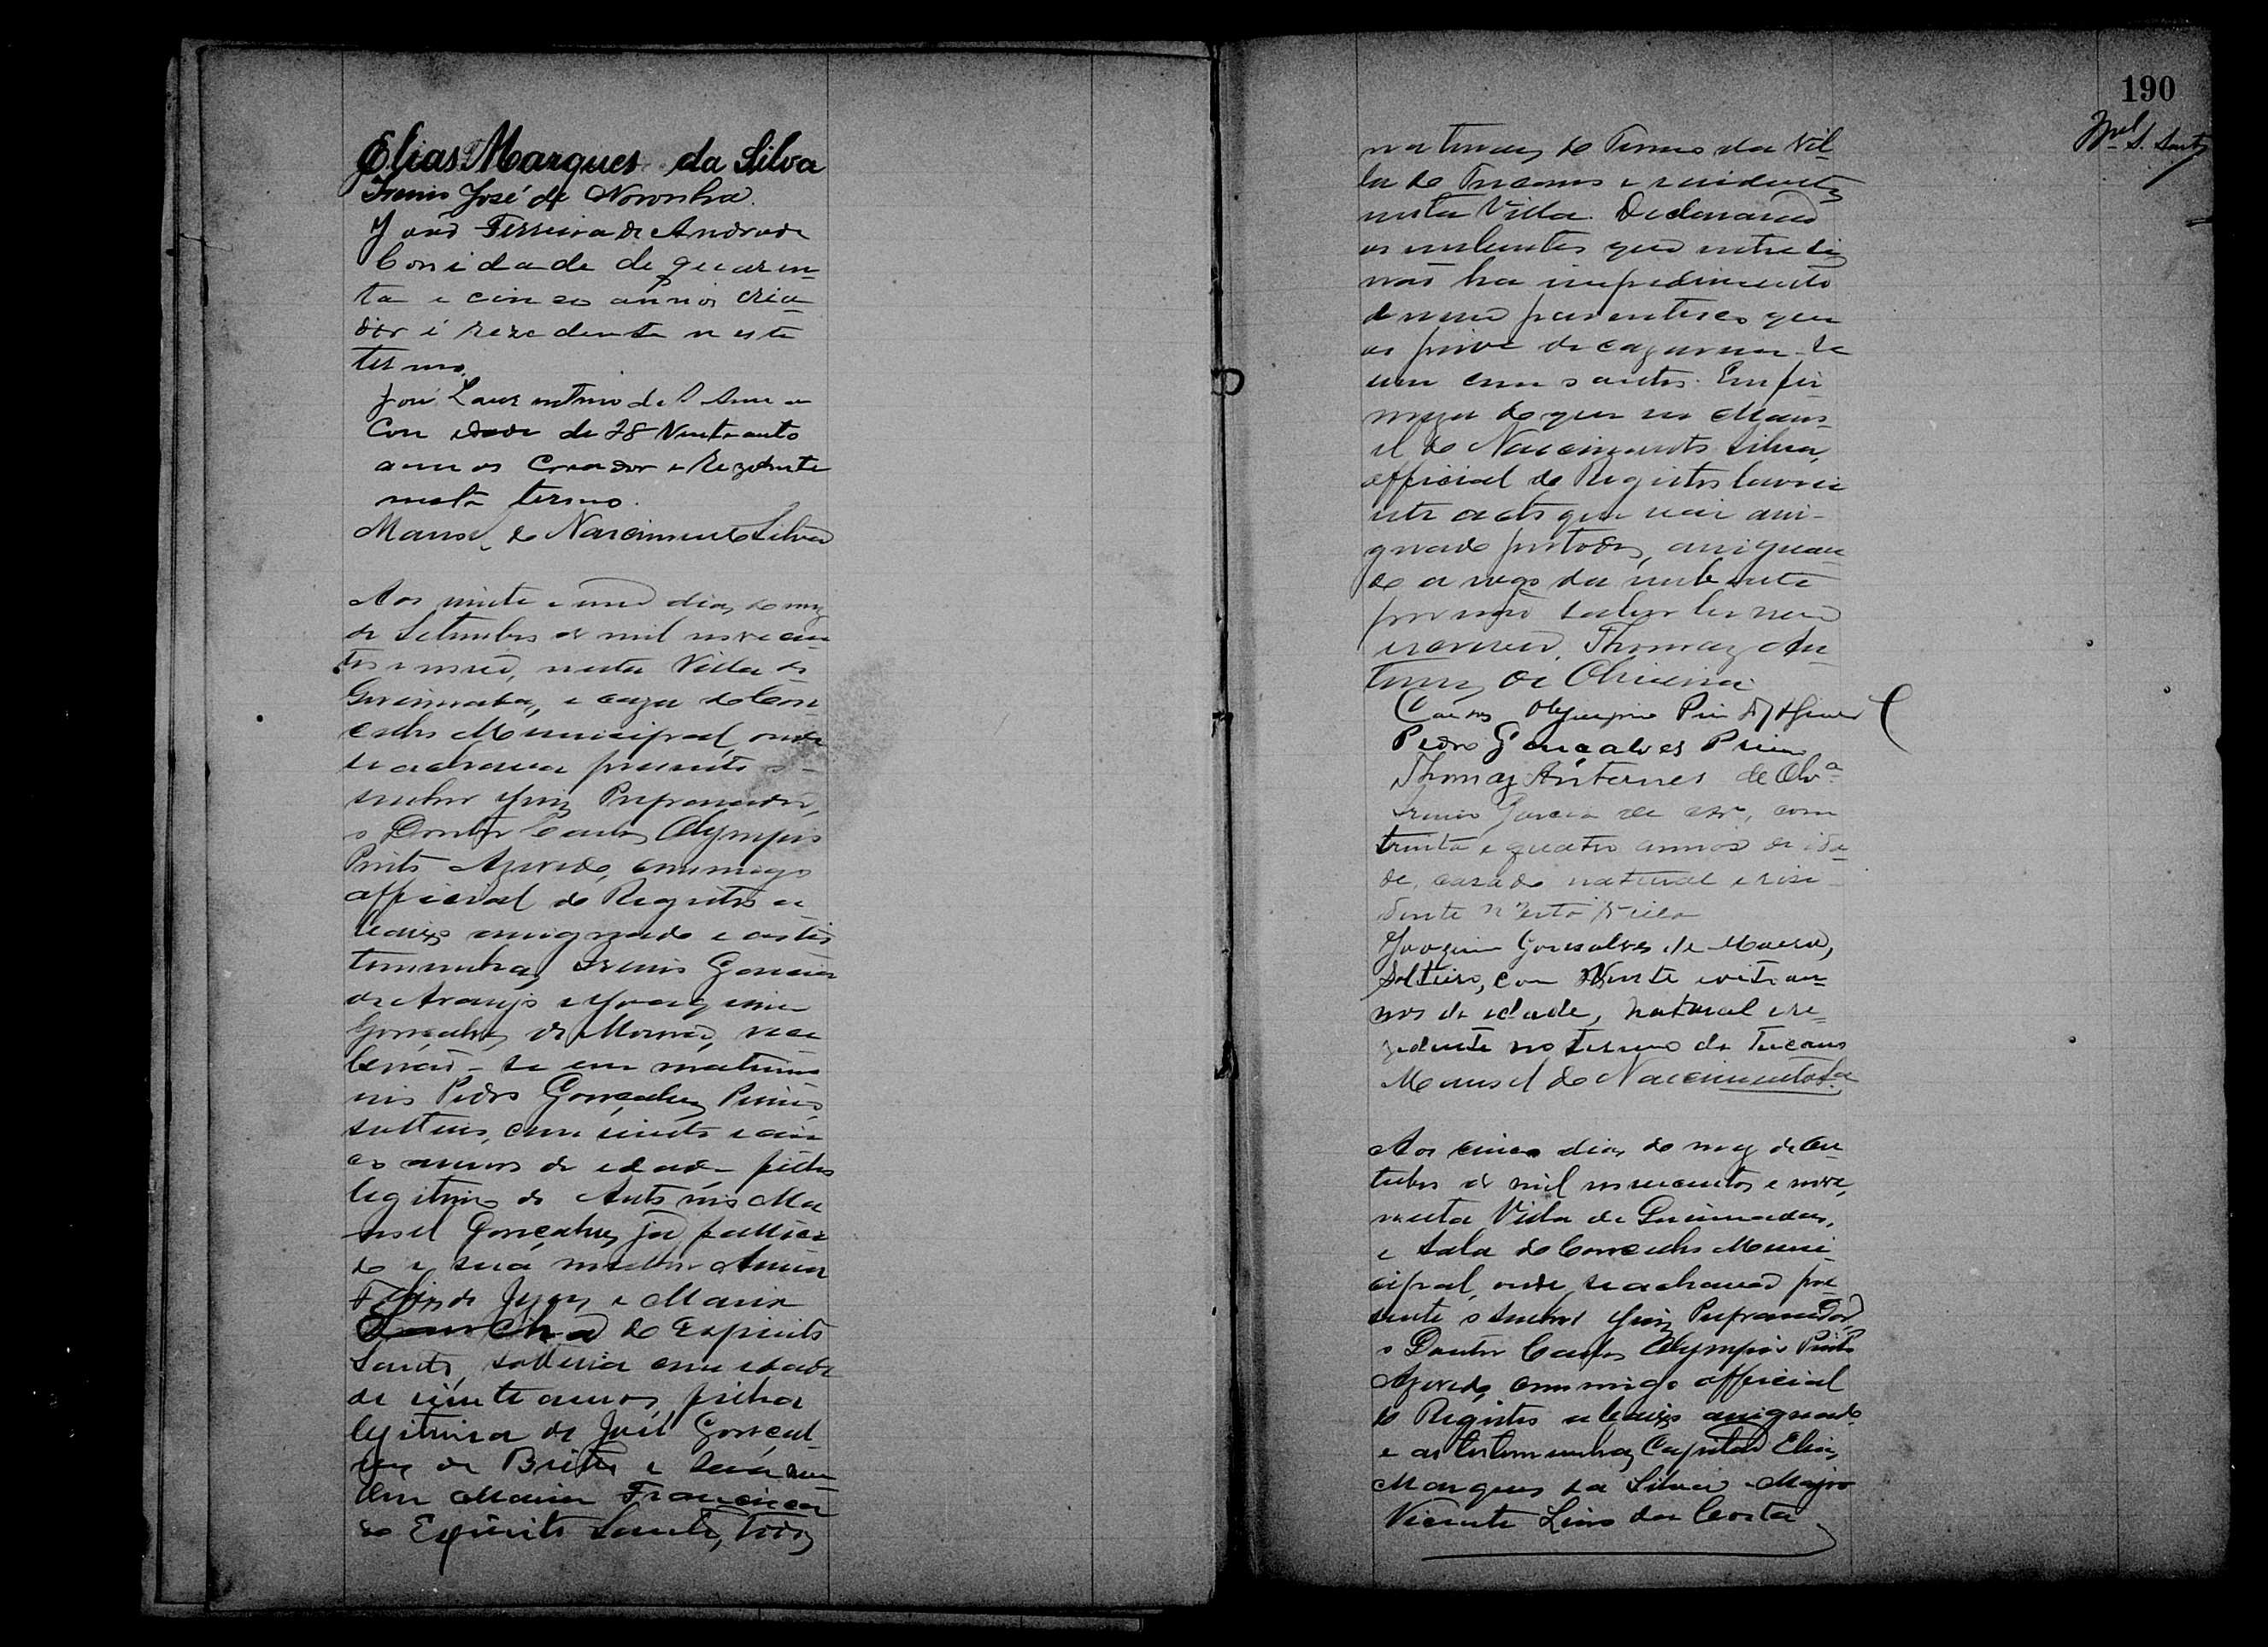 Elias Marques da Silva
Irenio José de Noronha.
João Ferreira de Andrade
Con idade de quaren-
ta e cinco annos cria-
dor é rezedente neste
termo.
José Laurentino de S Anna
Con edade de 28 Vinte oauto
annos Creador e Rezedente
nesta termo.
Manoel do Nascimento Silva
Aos vinte e um dias do mez
de Setembro de mil novecen-
tos e nove, nesta Villa de
Queimadas, e caza do Con-
celho Municipal, onde
se achava presente o
senhor Juiz Preparador,
o Doutor Carlos Olympio
Pinto Azevedo, commigo
official do Registro a-
baixo assignado e as tes-
temunhas Irenio Garcia
de Araujo e Joaquim
Gonçalves de Moura, rece-
berão-se em matrimo-
nio Pedro Gonçalves Primo,
solteiro, com vinte e cin-
co annos de edade, filho
legitimo de Antonio Ma-
noel Gonçalves, já falleci-
do e sua mulher Anna
de Jezus e Maria
do Espirito
Santo, solteira com edade
de vinte annos, filha
legitima de José Gonçal-
ves de Britto e sua mu-
lher Maria Francisca
do Espirito Santo, todos
190
naturaes do Termo da Vil-
la de Tucanos e residentes
nesta Villa. Declararão
os nubentes que entre si
não ha impedimento
de parentesco que
os prive de cazarem-se
um com o outro. Em fir-
meza do que eu Mano-
el do Nascimento Silva,
official do Registro lavrei
este acto que vai assi-
gnado por todos, assignan-
do a rogo da nubente
por não saber ler nem
escrever, Thomaz An-
tunes de Oliveira
Carlos Olympio Pinto d'Azevedo
Pedro Gonçalves Primo
Thomaz Antunes de Olvª
Irenio Garcia de Arº, com
trinta e quatro annos de ida-
de, casado natural e resi-
dente n'esta Villa
Joaquim Gonsalves de Moura,
Solteiro, con Vinte e oito an-
nos de edade, natural e re-
zedente no termo de Tucano
Manoel do Nascimento Sª
Aos cinco dias do mez de Ou-
tubro de mil novecentos e nove,
nesta Villa de Queimadas,
e Sala do Concelho Muni-
cipal, onde se achava pre-
sente o senhor Juiz Preparador,
o Doutor Carlos Olympio Pinto
Azevedo, commigo official
do Registro abaixo assignado
e as testemunhas Capitão Elias
Marques da Silva e Major
Vicente Lino da Costa